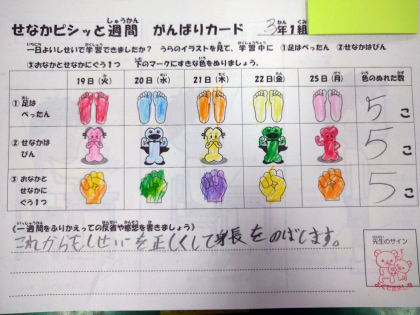 せなかピシッと週間　がんばりカード　3年1組
一日よいしせいで学習できましたか？　うらのイラストを見て、学習中に　①足はぺったん　②せなかはぴん
③おなかとせなかにぐう1つ　下のマークにすきな色をぬりましょう。
19日(火)　20日(水)　21日(木)　22日(金)　25日(月)　色のぬれた数
①足はぺったん　5こ
②せなかはぴん　5こ
③おなかとせなかにぐう1つ　5こ
(一週間をふりかえっての反省や感想を書きましょう)
これからもしせいを正しくして身長をのばします。
先生のサイン